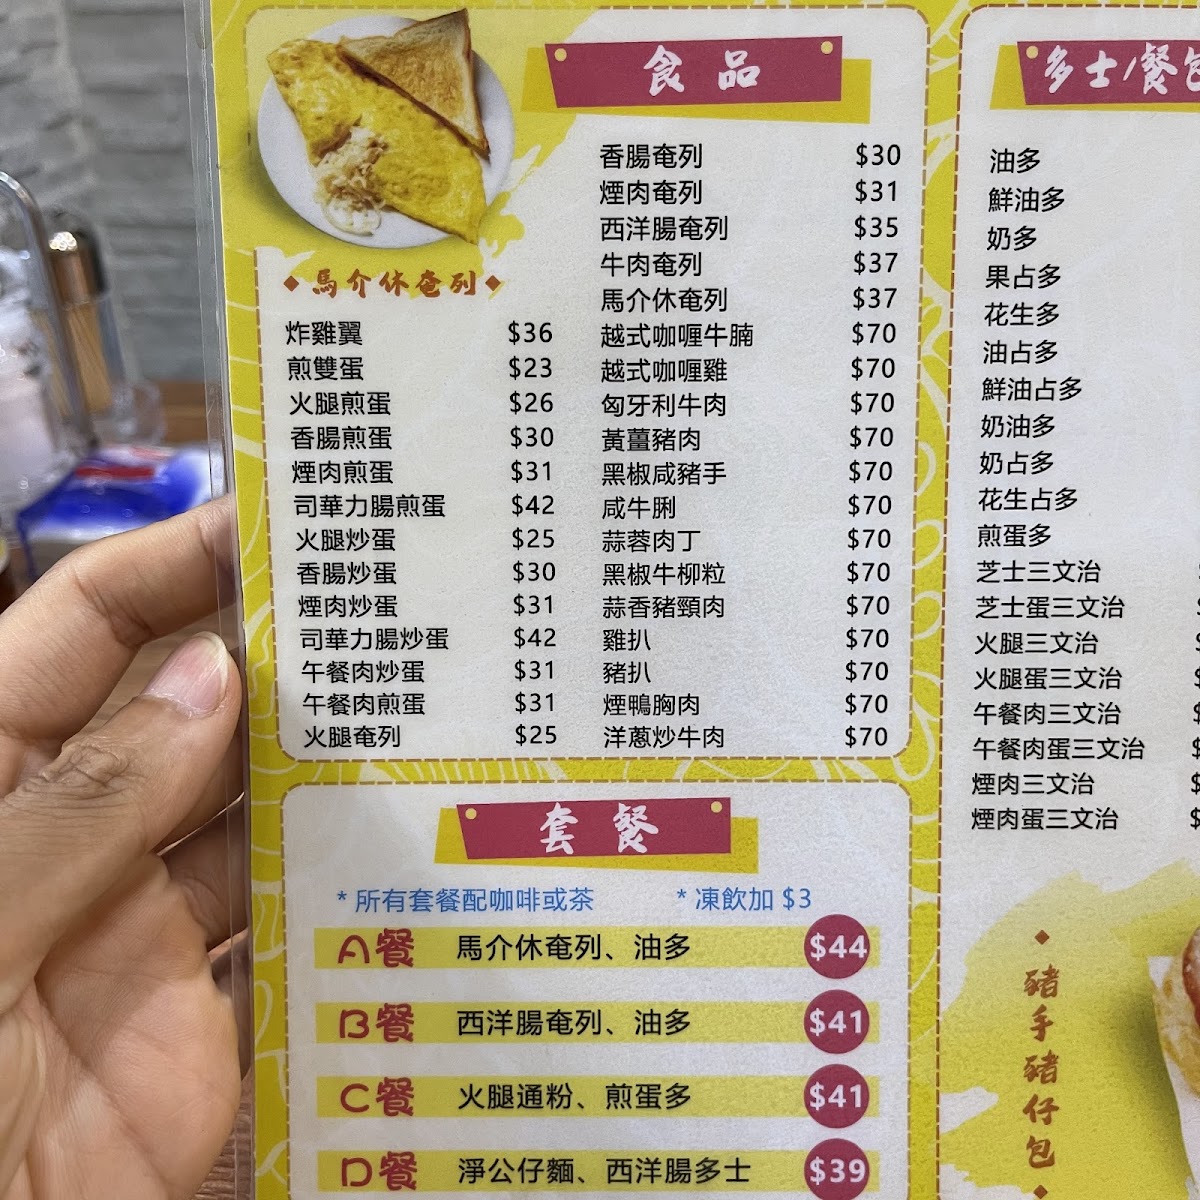 食品
馬介休奄列
炸雞翼 $36
煎雙蛋 $23
火腿煎蛋 $26
香腸煎蛋 $30
煙肉煎蛋 $31
司華力腸煎蛋 $42
火腿炒蛋 $25
香腸炒蛋 $30
煙肉炒蛋 $31
司華力腸炒蛋 $42
午餐肉炒蛋 $31
午餐肉煎蛋 $31
火腿奄列 $25
香腸奄列 $30
煙肉奄列 $31
西洋腸奄列 $35
牛肉奄列 $37
馬介休奄列 $37
越式咖喱牛腩 $70
越式咖喱雞 $70
匈牙利牛肉 $70
黃薑豬肉 $70
黑椒咸豬手 $70
咸牛脷 $70
蒜蓉肉丁 $70
黑椒牛柳粒 $70
蒜香豬頸肉 $70
雞扒 $70
豬扒 $70
煙鴨胸肉 $70
洋蔥炒牛肉 $70
套餐
* 所有套餐配咖啡或茶 * 凍飲加 $3
A餐 馬介休奄列、油多 $44
B餐 西洋腸奄列、油多 $41
C餐 火腿通粉、煎蛋多 $41
D餐 淨公仔麵、西洋腸多士 $39
多士/餐包
油多
鮮油多
奶多
果占多
花生多
油占多
鮮油占多
奶油多
奶占多
花生占多
煎蛋多
芝士三文治
芝士蛋三文治
火腿三文治
火腿蛋三文治
午餐肉三文治
午餐肉蛋三文治
煙肉三文治
煙肉蛋三文治
豬手豬仔包